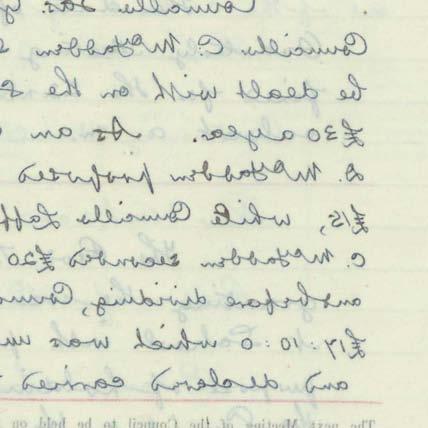 Councillor Jas.
Councillor C. McFadden
be dealt with on the
£30 a year. As an
D. McFadden proposed
£15, while Councillor Laff
C. McFadden seconded £20
and before dividing, Coun
£17:10:0 which was un
and declared carried
The next Meeting of the Council to be held on